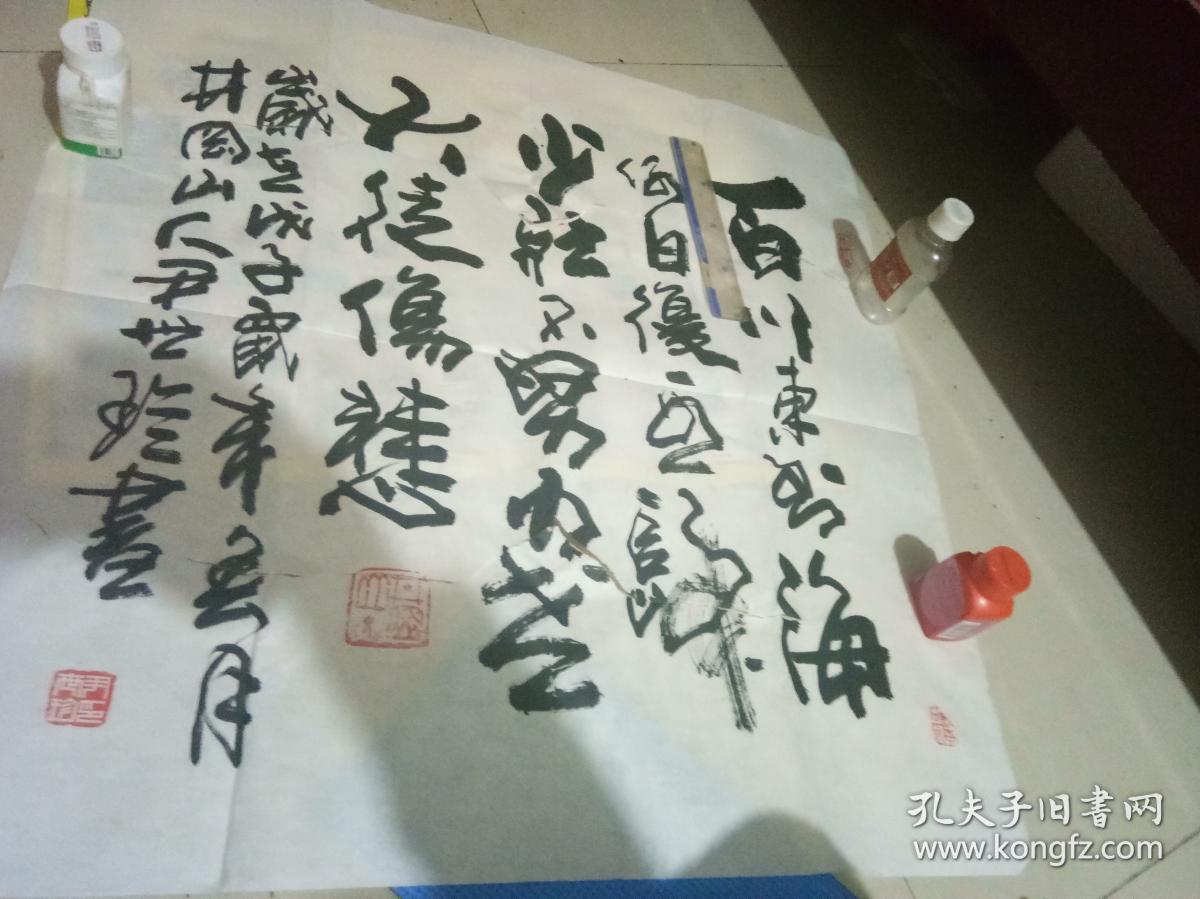 百川東到海
何日復西歸
少壯不努力老
大徒傷悲
歲在戊子鼠年五月
井岡山人尹世珍書
尹世珍印
孔夫子旧書网
www.kongfz.com